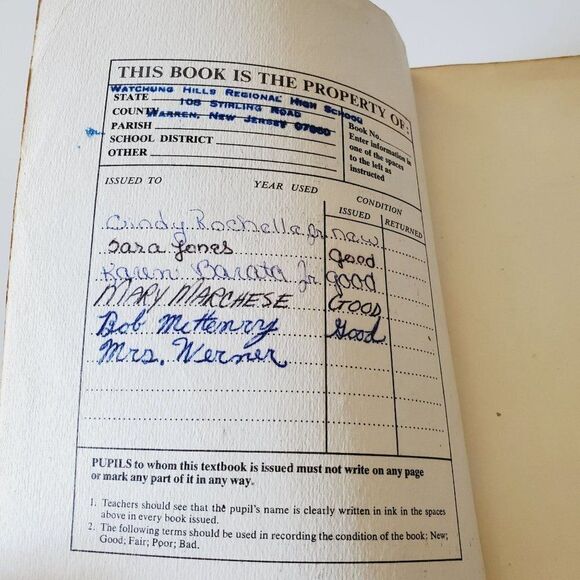 THIS BOOK IS THE PROPERTY OF:
WATCHUNG HILLS REGIONAL HIGH SCHOOL
STATE
108 STIRLING ROAD
COUNTY
WARREN, NEW JERSEY 07060
PARISH
SCHOOL DISTRICT
OTHER
Book No.
Enter information in
one of the spaces
to the left as
instructed
ISSUED TO YEAR USED CONDITION
ISSUED RETURNED
Cindy Rochelle Jr. new
Sara Jones Good
Karen Barata Jr good
MARY MARCHESE GOOD
Bob McHenry Good
Mrs. Werner
PUPILS to whom this textbook is issued must not write on any page
or mark any part of it in any way.
1. Teachers should see that the pupil's name is clearly written in ink in the spaces
above in every book issued.
2. The following terms should be used in recording the condition of the book: New;
Good; Fair; Poor; Bad.